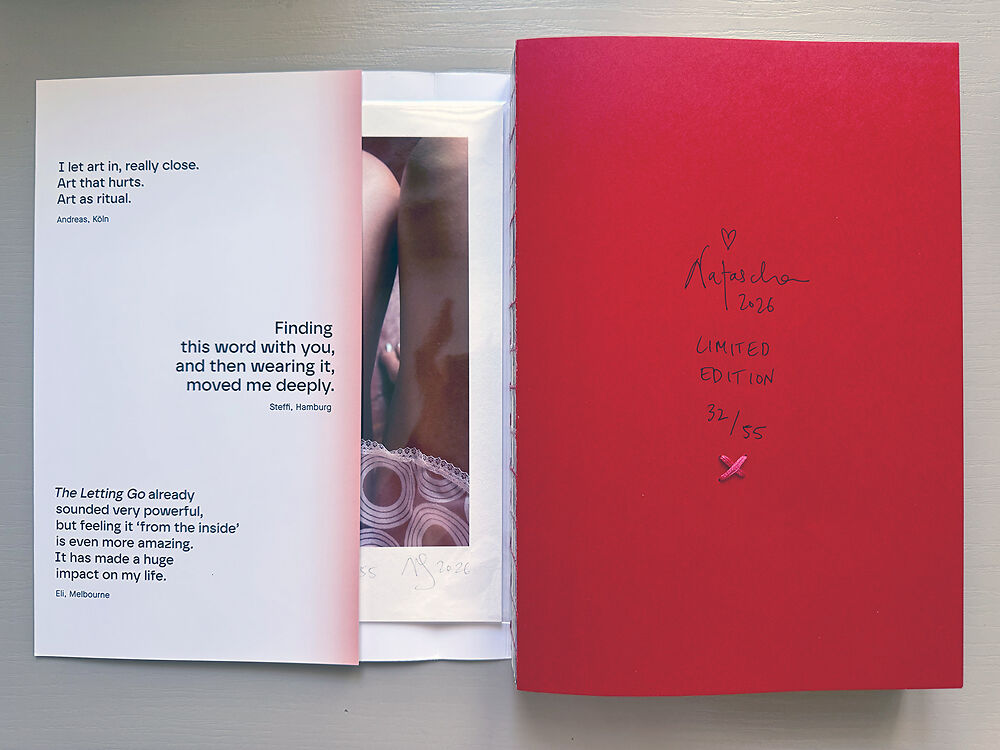 I let art in, really close.
Art that hurts.
Art as ritual.
Andreas, Köln
Finding
this word with you,
and then wearing it,
moved me deeply.
Steffi, Hamburg
The Letting Go already
sounded very powerful,
but feeling it ‘from the inside’
is even more amazing.
It has made a huge
impact on my life.
Eli, Melbourne
55 NS 2026
Natascha
2026
LIMITED
EDITION
32/55